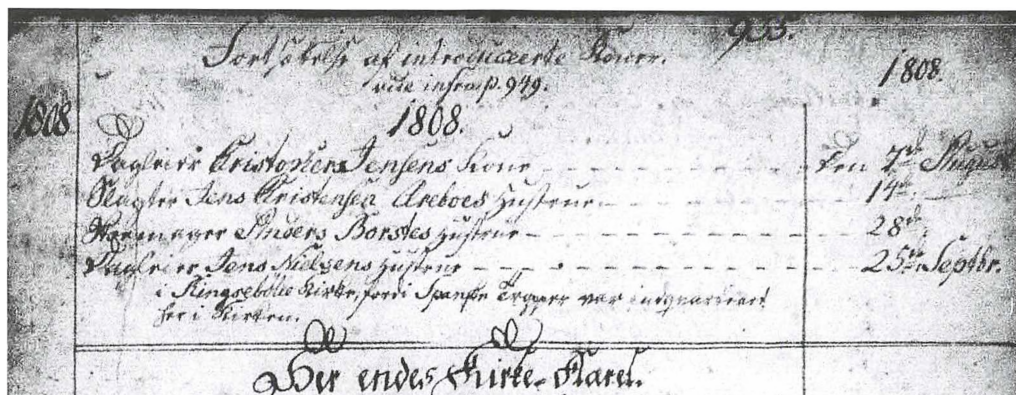 955.
Fortsættelse af introducerte Koner.
vide infra p. 949.
1808.
1808
1808.
Dagleier Kristopher Jensens Kone - - - Den 7de August
Slagter Jens Kristensen Areboes Hustrue - - - 14de
Anders Borstes Hustrue - - - 28de
Dagleier Jens Nielsens Hustrue - - - 25de Septbr.
i Kirke, fordi Spanske Tropper var indqvarteret
her i Kirken.
Her endes Kirke-